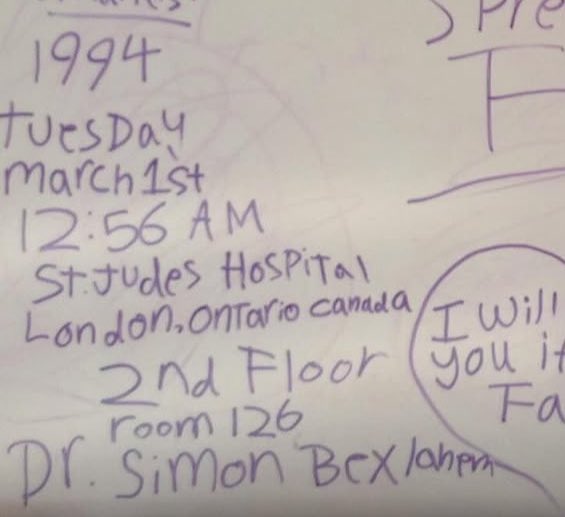 1994
Tuesday
March 1st
12:56 AM
St. Judes Hospital
London, Ontario Canada
2nd Floor
room 126
Dr. Simon
I Will
you